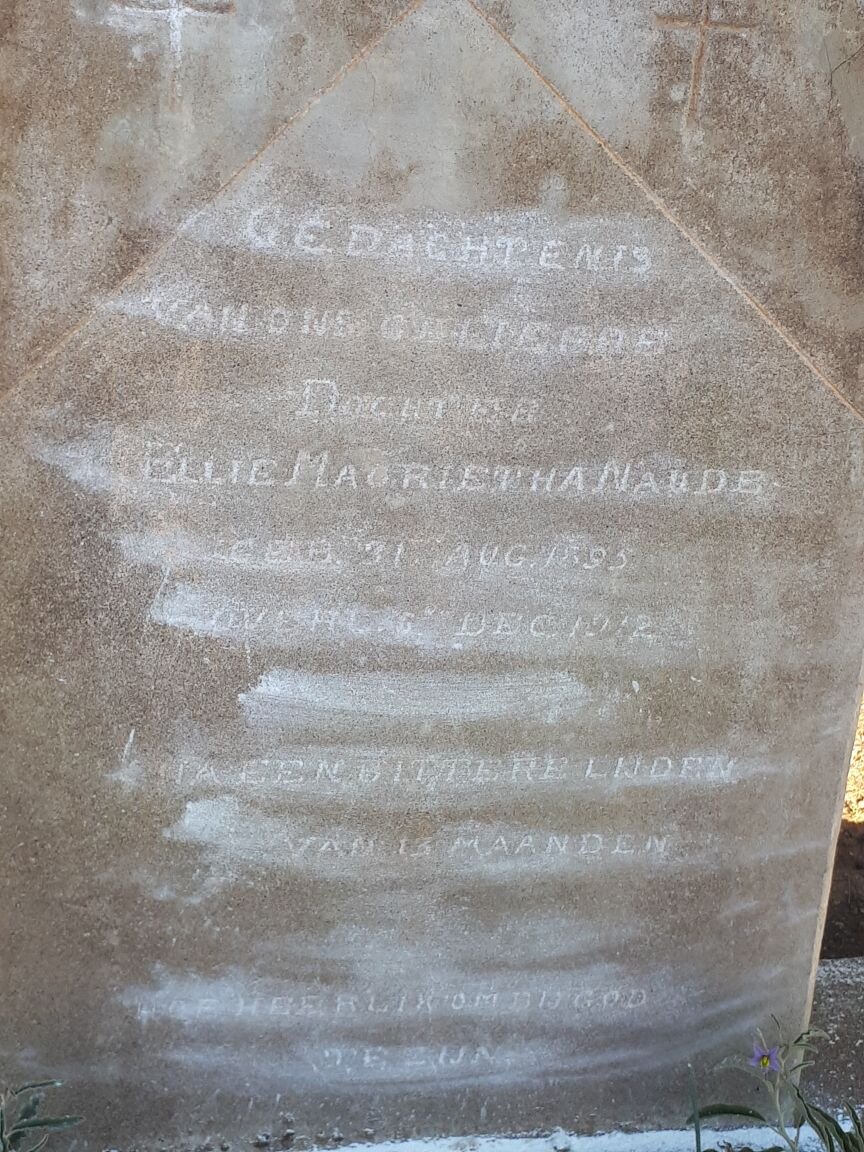 GEDACHTENIS
VAN ONS GELIEFDE
DOCHTER
ELLIE MAGRIETHA NAUDE
GEB. 31 AUG. 1895
OVERL. 6 DEC 1912
NA EEN BITTERE LIJDEN
VAN 13 MAANDEN
HOE HEERLIK OM BIJ GOD
TE ZIJN